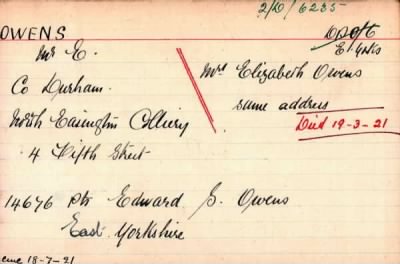 2/O/6235
OWENS
Dpofc
E. Yorks
Mr E.
Co Durham.
North Easington Colliery
4 Fifth Street
Mrs Elizabeth Owens
same address
Died 19-3-21
14676 Pte Edward S. Owens
East Yorkshire
18-7-21